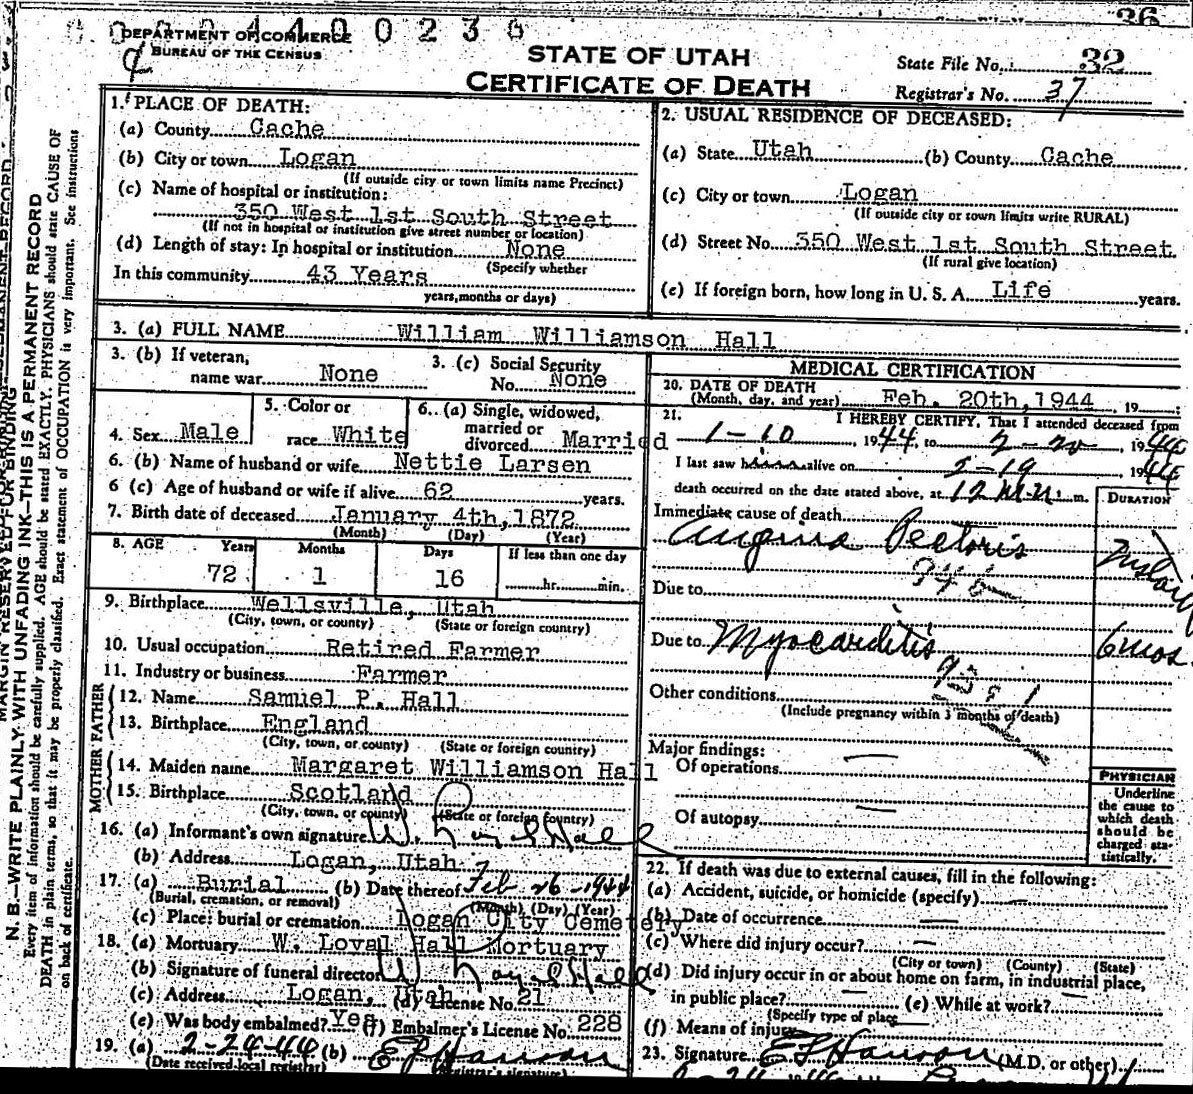 36
0 4 4 0 0 2 3 6
DEPARTMENT OF COMMERCE
BUREAU OF THE CENSUS
STATE OF UTAH
CERTIFICATE OF DEATH
State File No. 32
Registrar's No. 37
MARGIN RESERVED FOR BINDING
N. B.—WRITE PLAINLY, WITH UNFADING INK—THIS IS A PERMANENT RECORD
Every item of information should be carefully supplied. AGE should be stated EXACTLY. PHYSICIANS should state CAUSE OF
DEATH in plain terms, so that it may be properly classified. Exact statement of OCCUPATION is very important. See instructions
on back of certificate.
1. PLACE OF DEATH:
(a) County Cache
(b) City or town Logan
(If outside city or town limits name Precinct)
(c) Name of hospital or institution:
350 West 1st South Street
(If not in hospital or institution give street number or location)
(d) Length of stay: In hospital or institution None
(Specify whether
In this community 43 Years
years, months or days)
2. USUAL RESIDENCE OF DECEASED:
(a) State Utah (b) County Cache
(c) City or town Logan
(If outside city or town limits write RURAL)
(d) Street No. 350 West 1st South Street
(If rural give location)
(e) If foreign born, how long in U. S. A. Life years.
3. (a) FULL NAME William Williamson Hall
3. (b) If veteran,
name war None
3. (c) Social Security
No. None
4. Sex Male
5. Color or
race White
6. (a) Single, widowed,
married or
divorced Married
6. (b) Name of husband or wife Nettie Larsen
6 (c) Age of husband or wife if alive 62 years.
7. Birth date of deceased January 4th, 1872
(Month) (Day) (Year)
8. AGE Years Months Days If less than one day
72 1 16 hr. min.
9. Birthplace Wellsville, Utah
(City, town, or county) (State or foreign country)
10. Usual occupation Retired Farmer
11. Industry or business Farmer
FATHER
12. Name Samuel P. Hall
13. Birthplace England
(City, town, or county) (State or foreign country)
MOTHER
14. Maiden name Margaret Williamson Hall
15. Birthplace Scotland
(City, town, or county) (State or foreign country)
16. (a) Informant's own signature W. Loyal Hall
(b) Address Logan, Utah
17. (a) Burial (b) Date thereof Feb 26-1944
(Burial, cremation, or removal) (Month) (Day) (Year)
(c) Place: burial or cremation Logan City Cemetery
18. (a) Mortuary W. Loyal Hall Mortuary
(b) Signature of funeral director W Loyal Hall
(c) Address Logan, Utah (d) License No. 21
(e) Was body embalmed? Yes (f) Embalmer's License No. 228
19. (a) 2-24-44 (b)
(Date received local registrar) (Registrar's signature)
MEDICAL CERTIFICATION
20. DATE OF DEATH
(Month, day, and year) Feb. 20th, 1944, 19
21. I HEREBY CERTIFY, That I attended deceased from
1-10, 1944, to 2-20, 1944
I last saw h alive on 2-19 1944
death occurred on the date stated above, at 12 m.
DURATION
Immediate cause of death
Angina Pectoris
Due to
Due to Myocarditis 6 mos.
Other conditions
(Include pregnancy within 3 months of death)
Major findings:
Of operations —
Of autopsy —
PHYSICIAN
Underline
the cause to
which death
should be
charged sta-
tistically.
22. If death was due to external causes, fill in the following:
(a) Accident, suicide, or homicide (specify) —
(b) Date of occurrence —
(c) Where did injury occur? —
(City or town) (County) (State)
(d) Did injury occur in or about home on farm, in industrial place,
in public place? — (e) While at work? —
(Specify type of place
(f) Means of injury
23. Signature (M.D. or other)